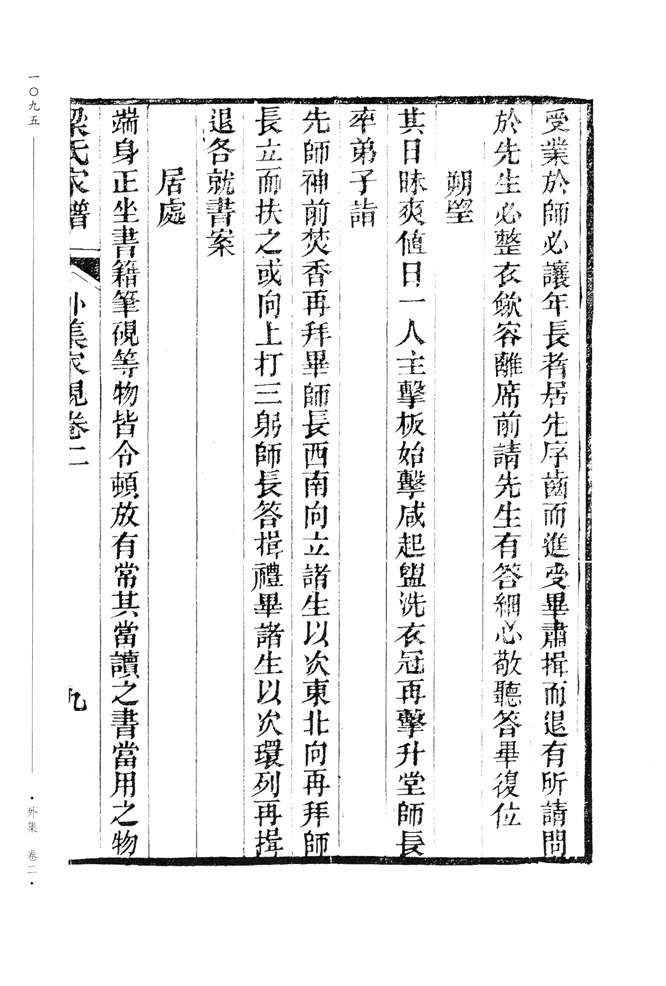 受業於師必讓年長者居先序齒而進受畢肅揖而退有所請問
於先生必整衣歛容離席前請先生有答網必敬聽答畢復位
朔望
其日昧爽値日一人主擊板始擊咸起盥洗衣冠再擊升堂師長
率弟子詣
先師神前焚香再拜畢師長西南向立諸生以次東北向再拜師
長立而扶之或向上打三躬師長答揖禮畢諸生以次環列再揖
退各就書案
居處
端身正坐書籍筆硯等物皆令頓放有常其當讀之書當用之物
梁氏家譜 外集家規卷二 九
一〇九五
·外集 卷二·